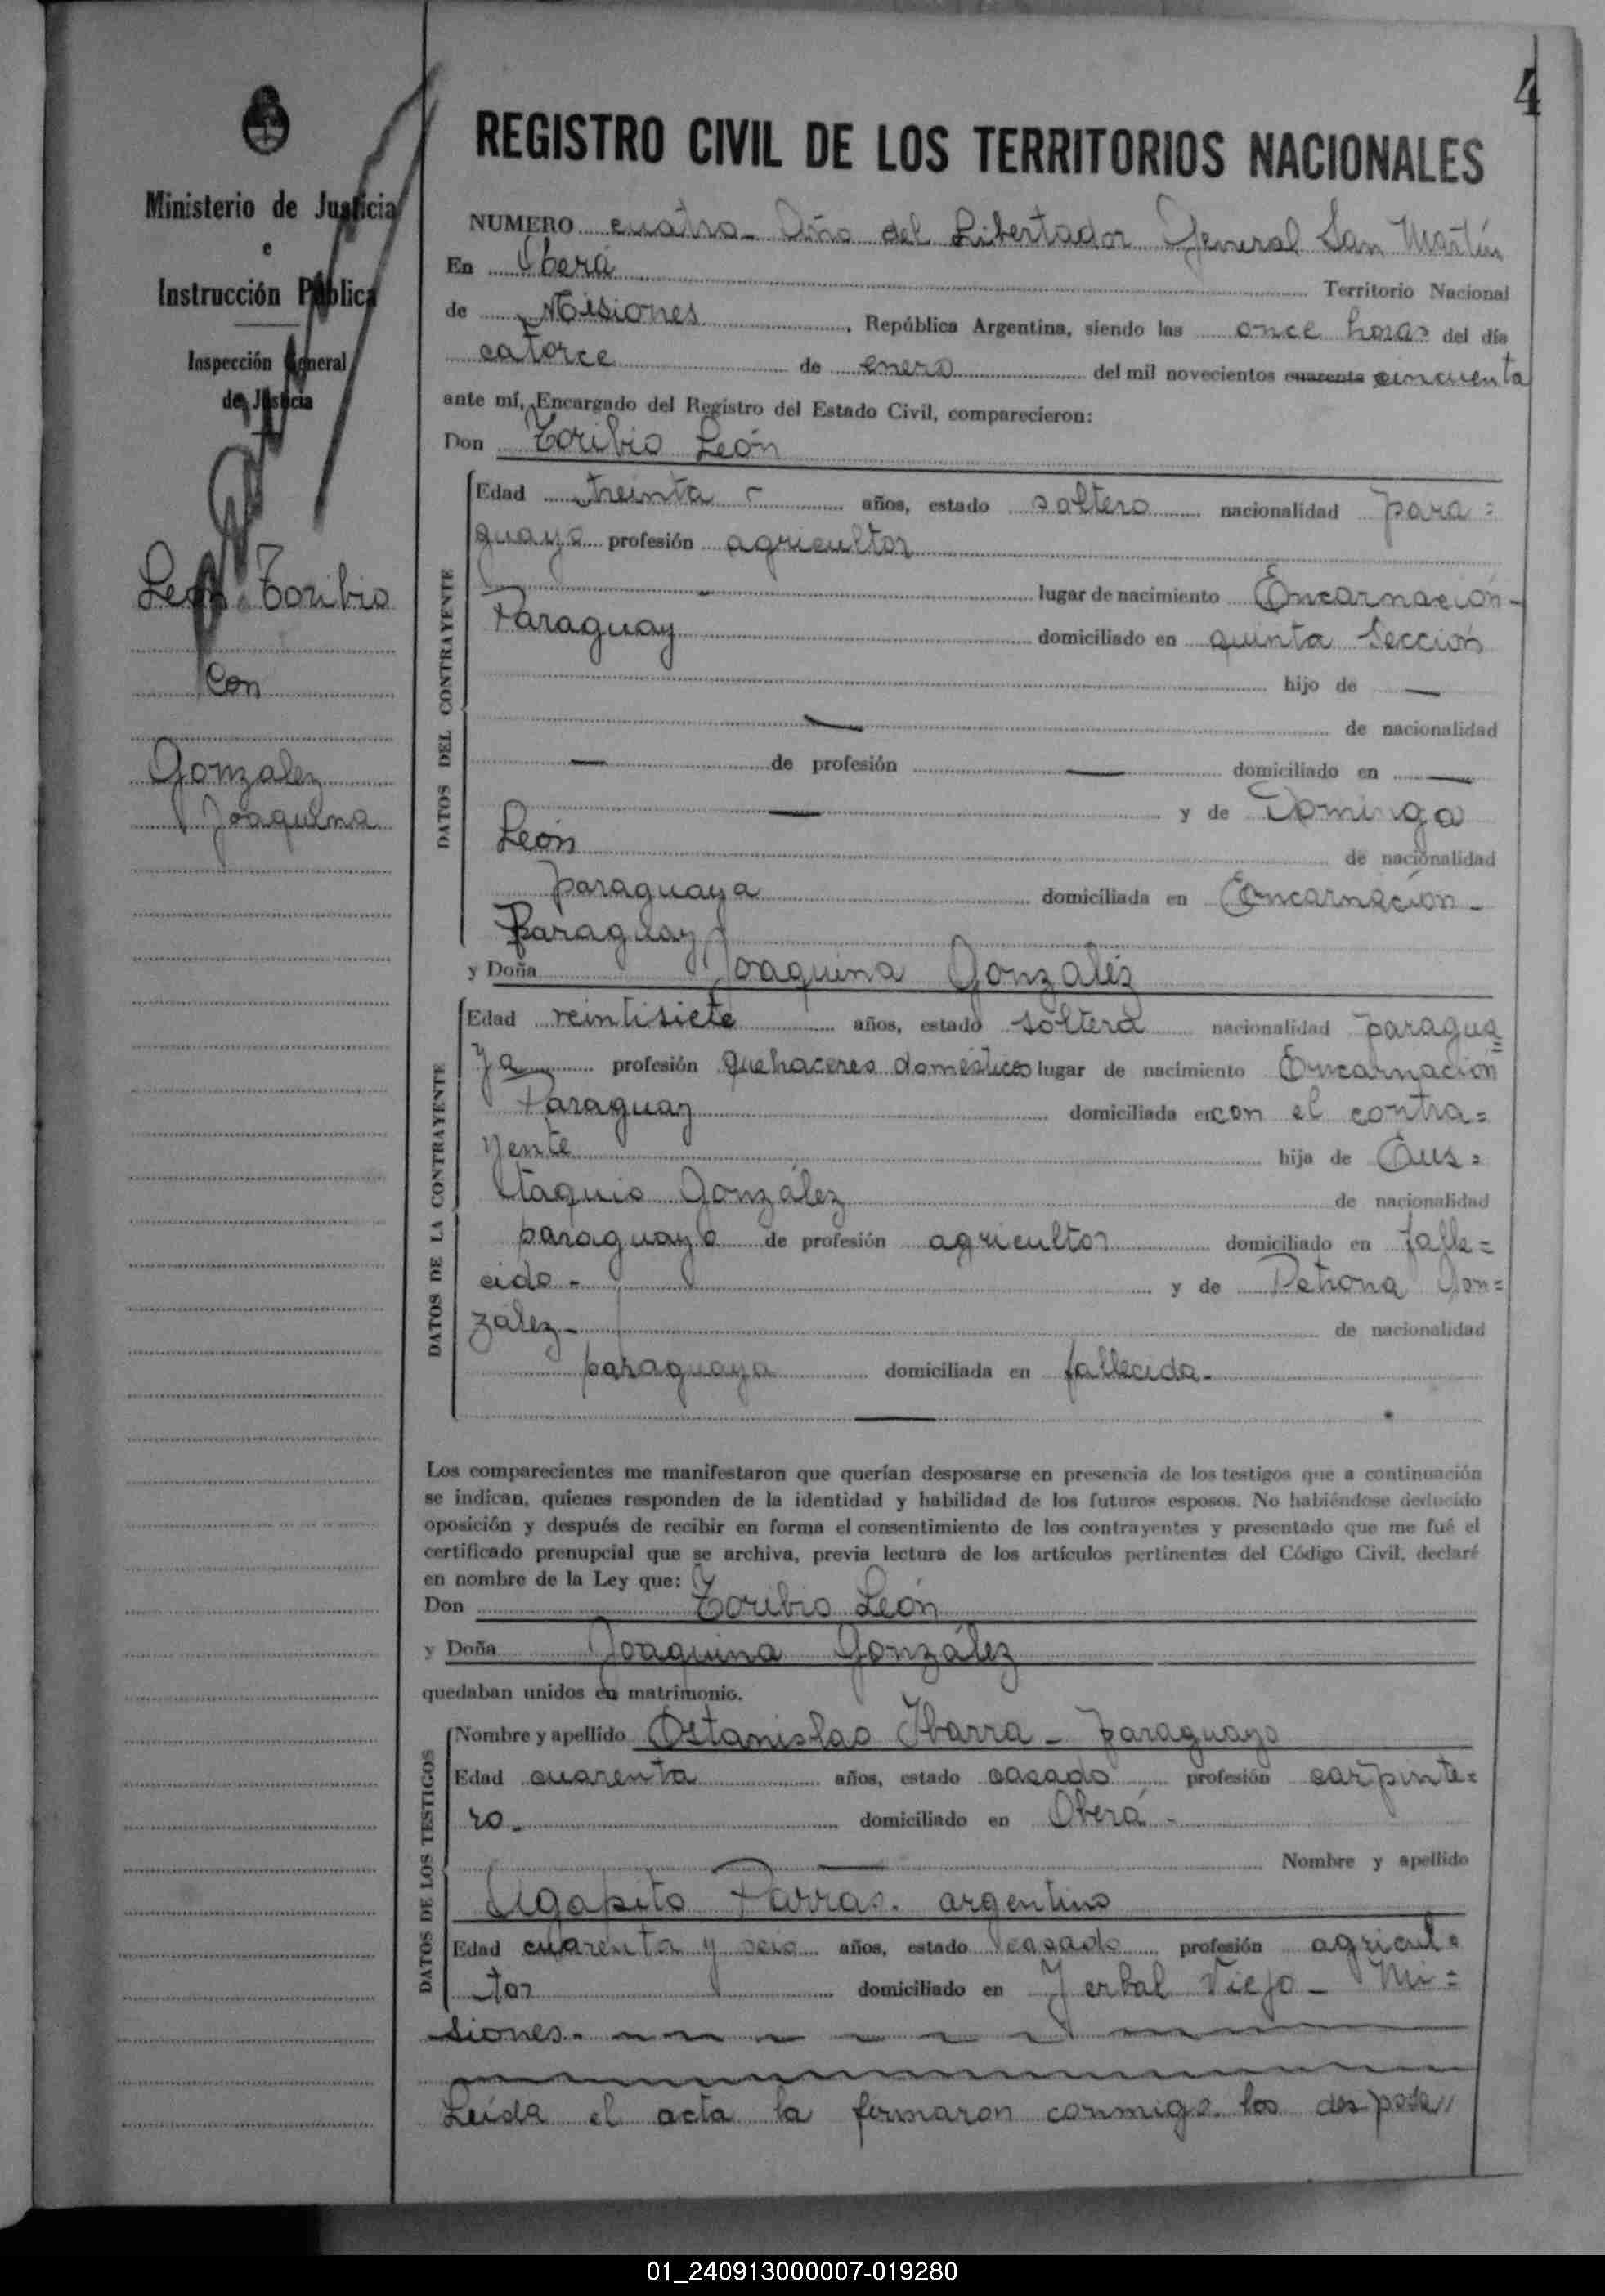 4
Ministerio de Justicia
e
Instrucción Pública
Inspección General
de Justicia
León Toribio
Con
Gonzalez
Joaquina
REGISTRO CIVIL DE LOS TERRITORIOS NACIONALES
NUMERO cuatro- Año del Libertador General San Martín
En Oberá Territorio Nacional
de Misiones, República Argentina, siendo las once horas del día
catorce de enero del mil novecientos cuarenta cincuenta
ante mí, Encargado del Registro del Estado Civil, comparecieron:
Don Toribio León
DATOS DEL CONTRAYENTE
Edad treinta - años, estado soltero nacionalidad para=
guayo profesión agricultor
lugar de nacimiento Encarnación-
Paraguay domiciliado en quinta Sección
hijo de —
— de nacionalidad
— de profesión — domiciliado en —
— y de Dominga
León de nacionalidad
paraguaya domiciliada en Encarnación-
Paraguay
y Doña Joaquina Gonzaléz
DATOS DE LA CONTRAYENTE
Edad veintisiete años, estado soltera nacionalidad paragua=
ya profesión quehaceres domésticos lugar de nacimiento Encarnación
Paraguay domiciliada en con el contra=
yente hija de Eus=
taquio González de nacionalidad
paraguayo de profesión agricultor domiciliado en falle=
cido- y de Petrona Gon=
zález- de nacionalidad
paraguaya domiciliada en fallecida-
Los comparecientes me manifestaron que querían desposarse en presencia de los testigos que a continuación
se indican, quienes responden de la identidad y habilidad de los futuros esposos. No habiéndose deducido
oposición y después de recibir en forma el consentimiento de los contrayentes y presentado que me fué el
certificado prenupcial que se archiva, previa lectura de los artículos pertinentes del Código Civil, declaré
en nombre de la Ley que:
Don Toribio León
y Doña Joaquina González
quedaban unidos en matrimonio.
DATOS DE LOS TESTIGOS
Nombre y apellido Estanislao Ibarra - paraguayo
Edad cuarenta años, estado casado profesión carpinte=
ro- domiciliado en Oberá-
Nombre y apellido
Agapito Parras. argentino
Edad cuarenta y seis años, estado casado profesión agricul=
tor domiciliado en Yerbal Viejo- Mi=
siones-
Leída el acta la firmaron conmigo los despose//
01_240913000007-019280